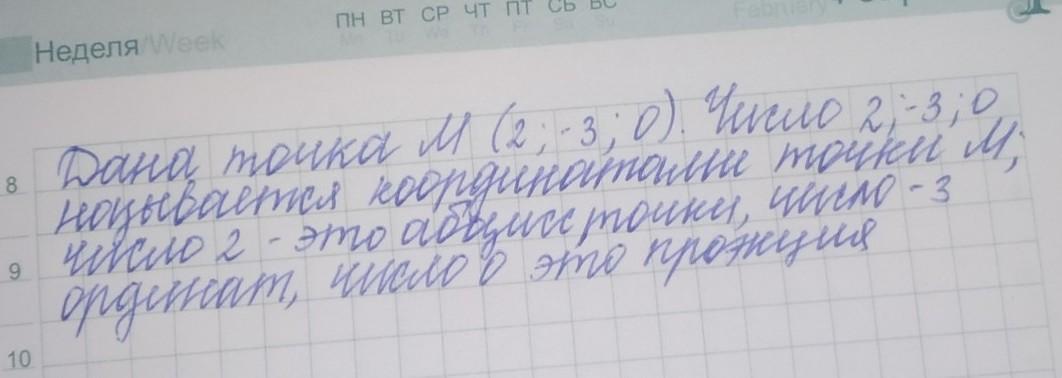 ПН ВТ СР ЧТ ПТ СБ ВС
Mo Tu We Th Fr Sa Su
February
Неделя/Week
8
Дана точка М (2; -3; 0). Число 2; -3; 0
называется координатами точки М;
число 2 - это абцисс точки, число -3
9
ординат, число 0 это проэкция
10